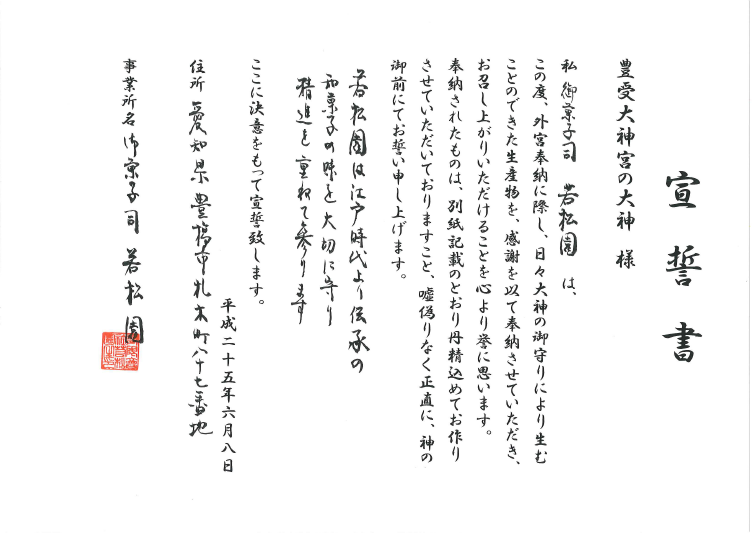 宣誓書
豊受大神宮の大神 様
私 御菓子司 若松園 は、
この度、外宮奉納に際し、日々大神の御守りにより生む
ことのできた生産物を、感謝を以て奉納させていただき、
お召し上がりいただけることを心より誉に思います。
奉納されたものは、別紙記載のとおり丹精込めてお作り
させていただいておりますこと、嘘偽りなく正直に、神の
御前にてお誓い申し上げます。
若松園は江戸時代より伝承の
和菓子の味を大切に守り
精進を重ねて参ります
ここに決意をもって宣誓致します。
平成二十五年六月八日
住所 愛知県豊橋市札木町八十七番地
事業所名 御菓子司 若松園